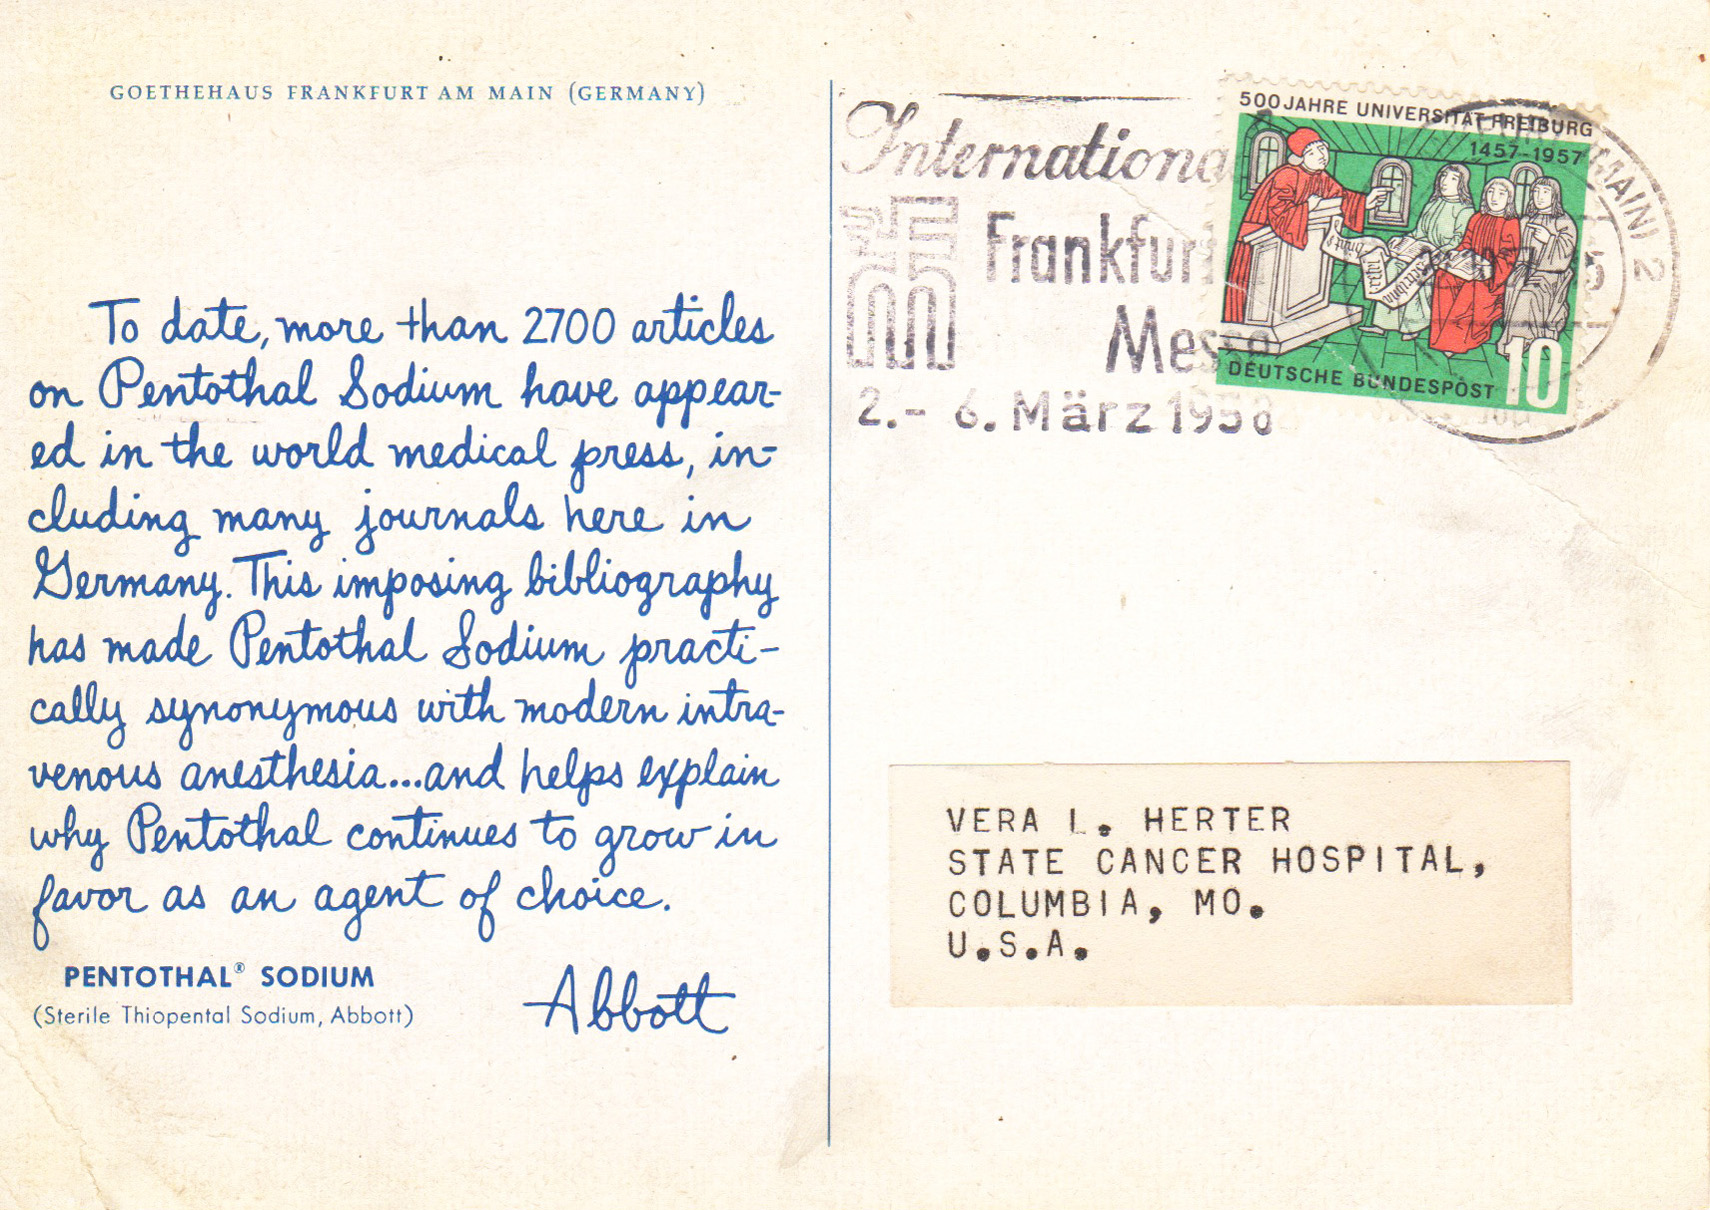 GOETHEHAUS FRANKFURT AM MAIN (GERMANY)
To date, more than 2700 articles
on Pentothal Sodium have appear-
ed in the world medical press, in-
cluding many journals here in
Germany. This imposing bibliography
has made Pentothal Sodium practi-
cally synonymous with modern intra-
venous anesthesia...and helps explain
why Pentothal continues to grow in
favor as an agent of choice.
PENTOTHAL® SODIUM
(Sterile Thiopental Sodium, Abbott)
Abbott
Internationa
Frankfurt
Messe
2.- 6. März 1958
500 JAHRE UNIVERSITÄT FREIBURG
1457-1957
10
DEUTSCHE BUNDESPOST
MAIN) 2
VERA L. HERTER
STATE CANCER HOSPITAL,
COLUMBIA, MO.
U.S.A.